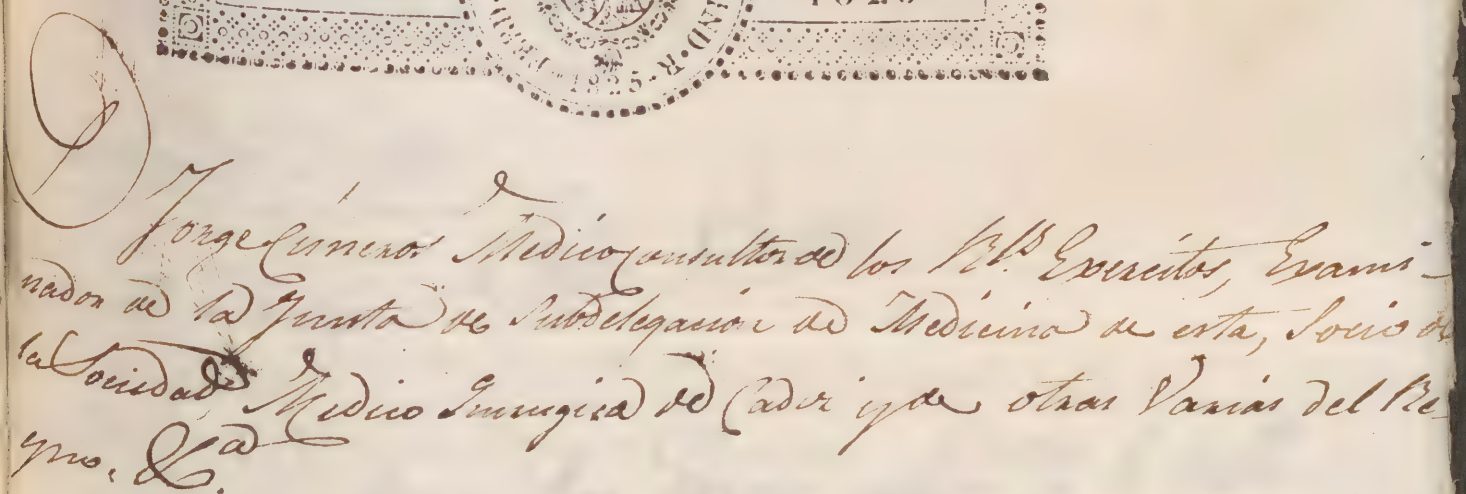 1825
D
Jorge Cisneros Medico Consultor de los Rl.s Exercitos, Exami-
nador de la Junta de Subdelegacion de Medicina de esta, Socio de
la Sociedad Medico Quirurgica de Cadiz y de otras Varias del Re-
yno. &.a